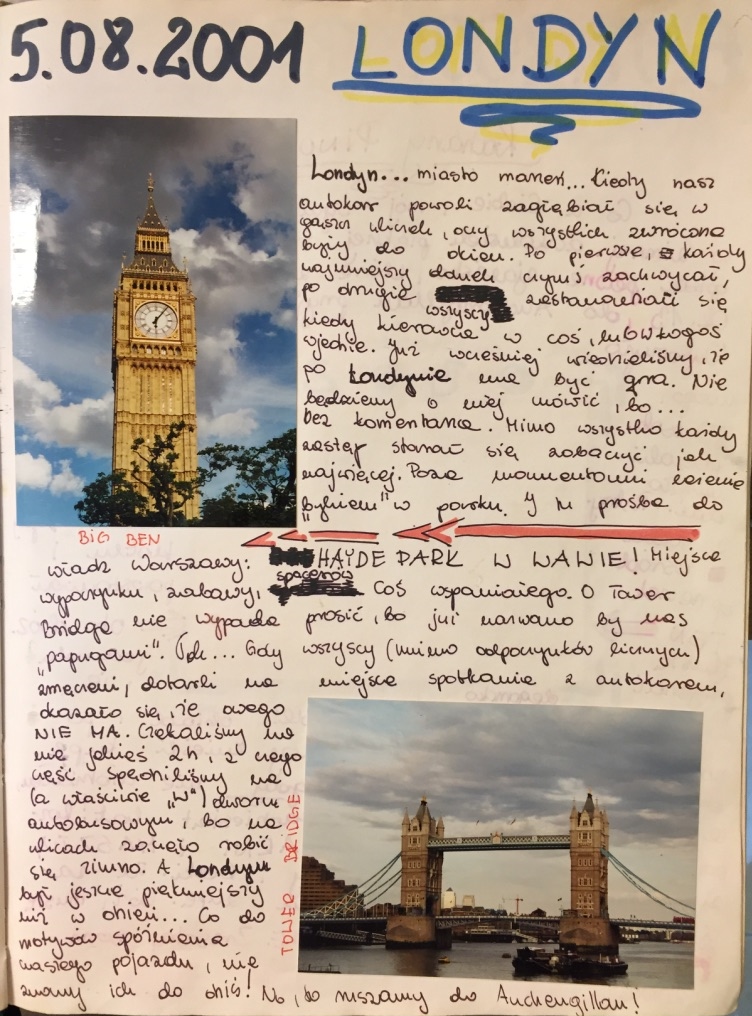 5.08.2001 LONDYN
Londyn... miasto marzeń... Kiedy nasz
autokar powoli zagłębiał się w
gąszcz uliczek, oczy wszystkich zwrócone
były do okien. Po pierwsze, każdy
najmniejszy domek czymś zachwycał,
po drugie zastanawiali się
wszyscy
kiedy kierowca w coś, lub w kogoś
wjedzie. Już wcześniej wiedzieliśmy, że
po Londynie ma być gra. Nie
będziemy o niej mówić, bo...
bez komentarza. Mimo wszystko każdy
zastęp starał się zobaczyć jak
najwięcej. Poza momentami leżenia
"bykiem" w parku. I tu prośba do
BIG BEN
władz Warszawy: HAYDE PARK W WAWIE! Miejsce
spacerów
wypoczynku, zabawy, coś wspaniałego. O Tower
Bridge nie wypada prosić, bo już nazwano by nas
"papugami". Ech... Gdy wszyscy (mimo odpoczynków licznych)
zmęczeni, dotarli na miejsce spotkania z autokarem,
okazało się, że owego
NIE MA. Czekaliśmy na
nie jakieś 2h, z czego
część spędziliśmy na
(a właściwie "w") dworcu
autobusowym, bo na
ulicach zaczęło robić
się zimno. A Londyn
był jeszcze piękniejszy
niż w dzień... Co do
motywów spóźnienia
naszego pojazdu, nie
znamy ich do dziś! No, to ruszamy do Auchengillan!
TOWER BRIDGE